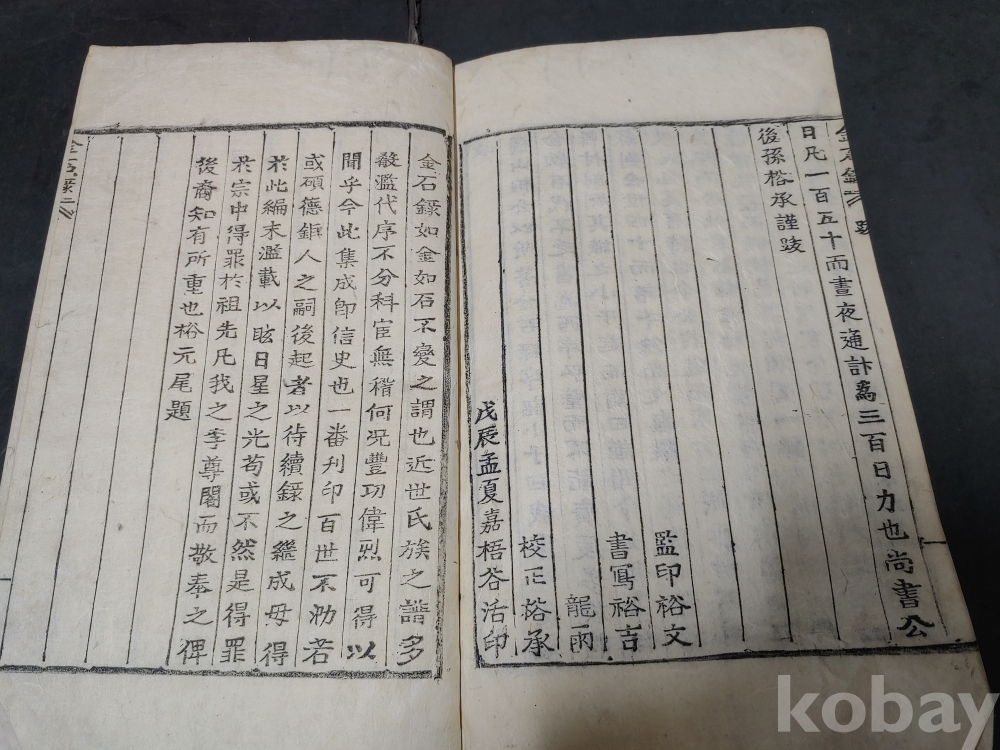 金石錄 跋
日凡一百五十而晝夜通計爲三百日力也尚書公
後孫榕承謹跋
監印裕文
書寫裕吉
龍雨
校正榕承
戊辰孟夏嘉梧谷活印
金石錄如金如石不變之謂也近世氏族之譜多
散濫代序不分科宦無稽何况豐功偉烈可得以
聞乎今此集成印信史也一番刊印百世不泐若
或碩德鉅人之嗣後起者以待續錄之繼成毋得
於此編末濫載以眩日星之光苟或不然是得罪
於宗中得罪於祖先凡我之李尊閣而敬奉之俾
後裔知有所重也裕元尾題
金石錄二
kobay